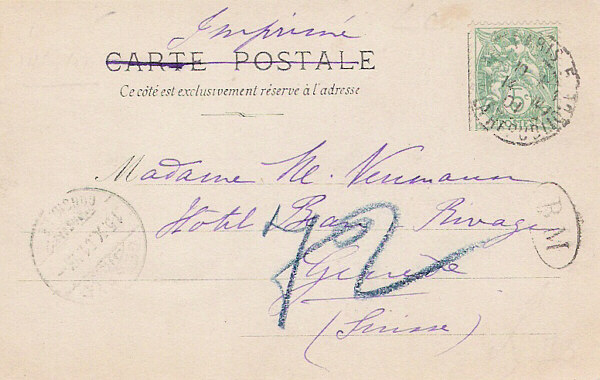 Imprimé
CARTE POSTALE
Ce côté est exclusivement réservé à l'adresse
5
PARIS
Madame M. Neumann
Hotel Beau-Rivage
Genève
(Suisse)
BM
12